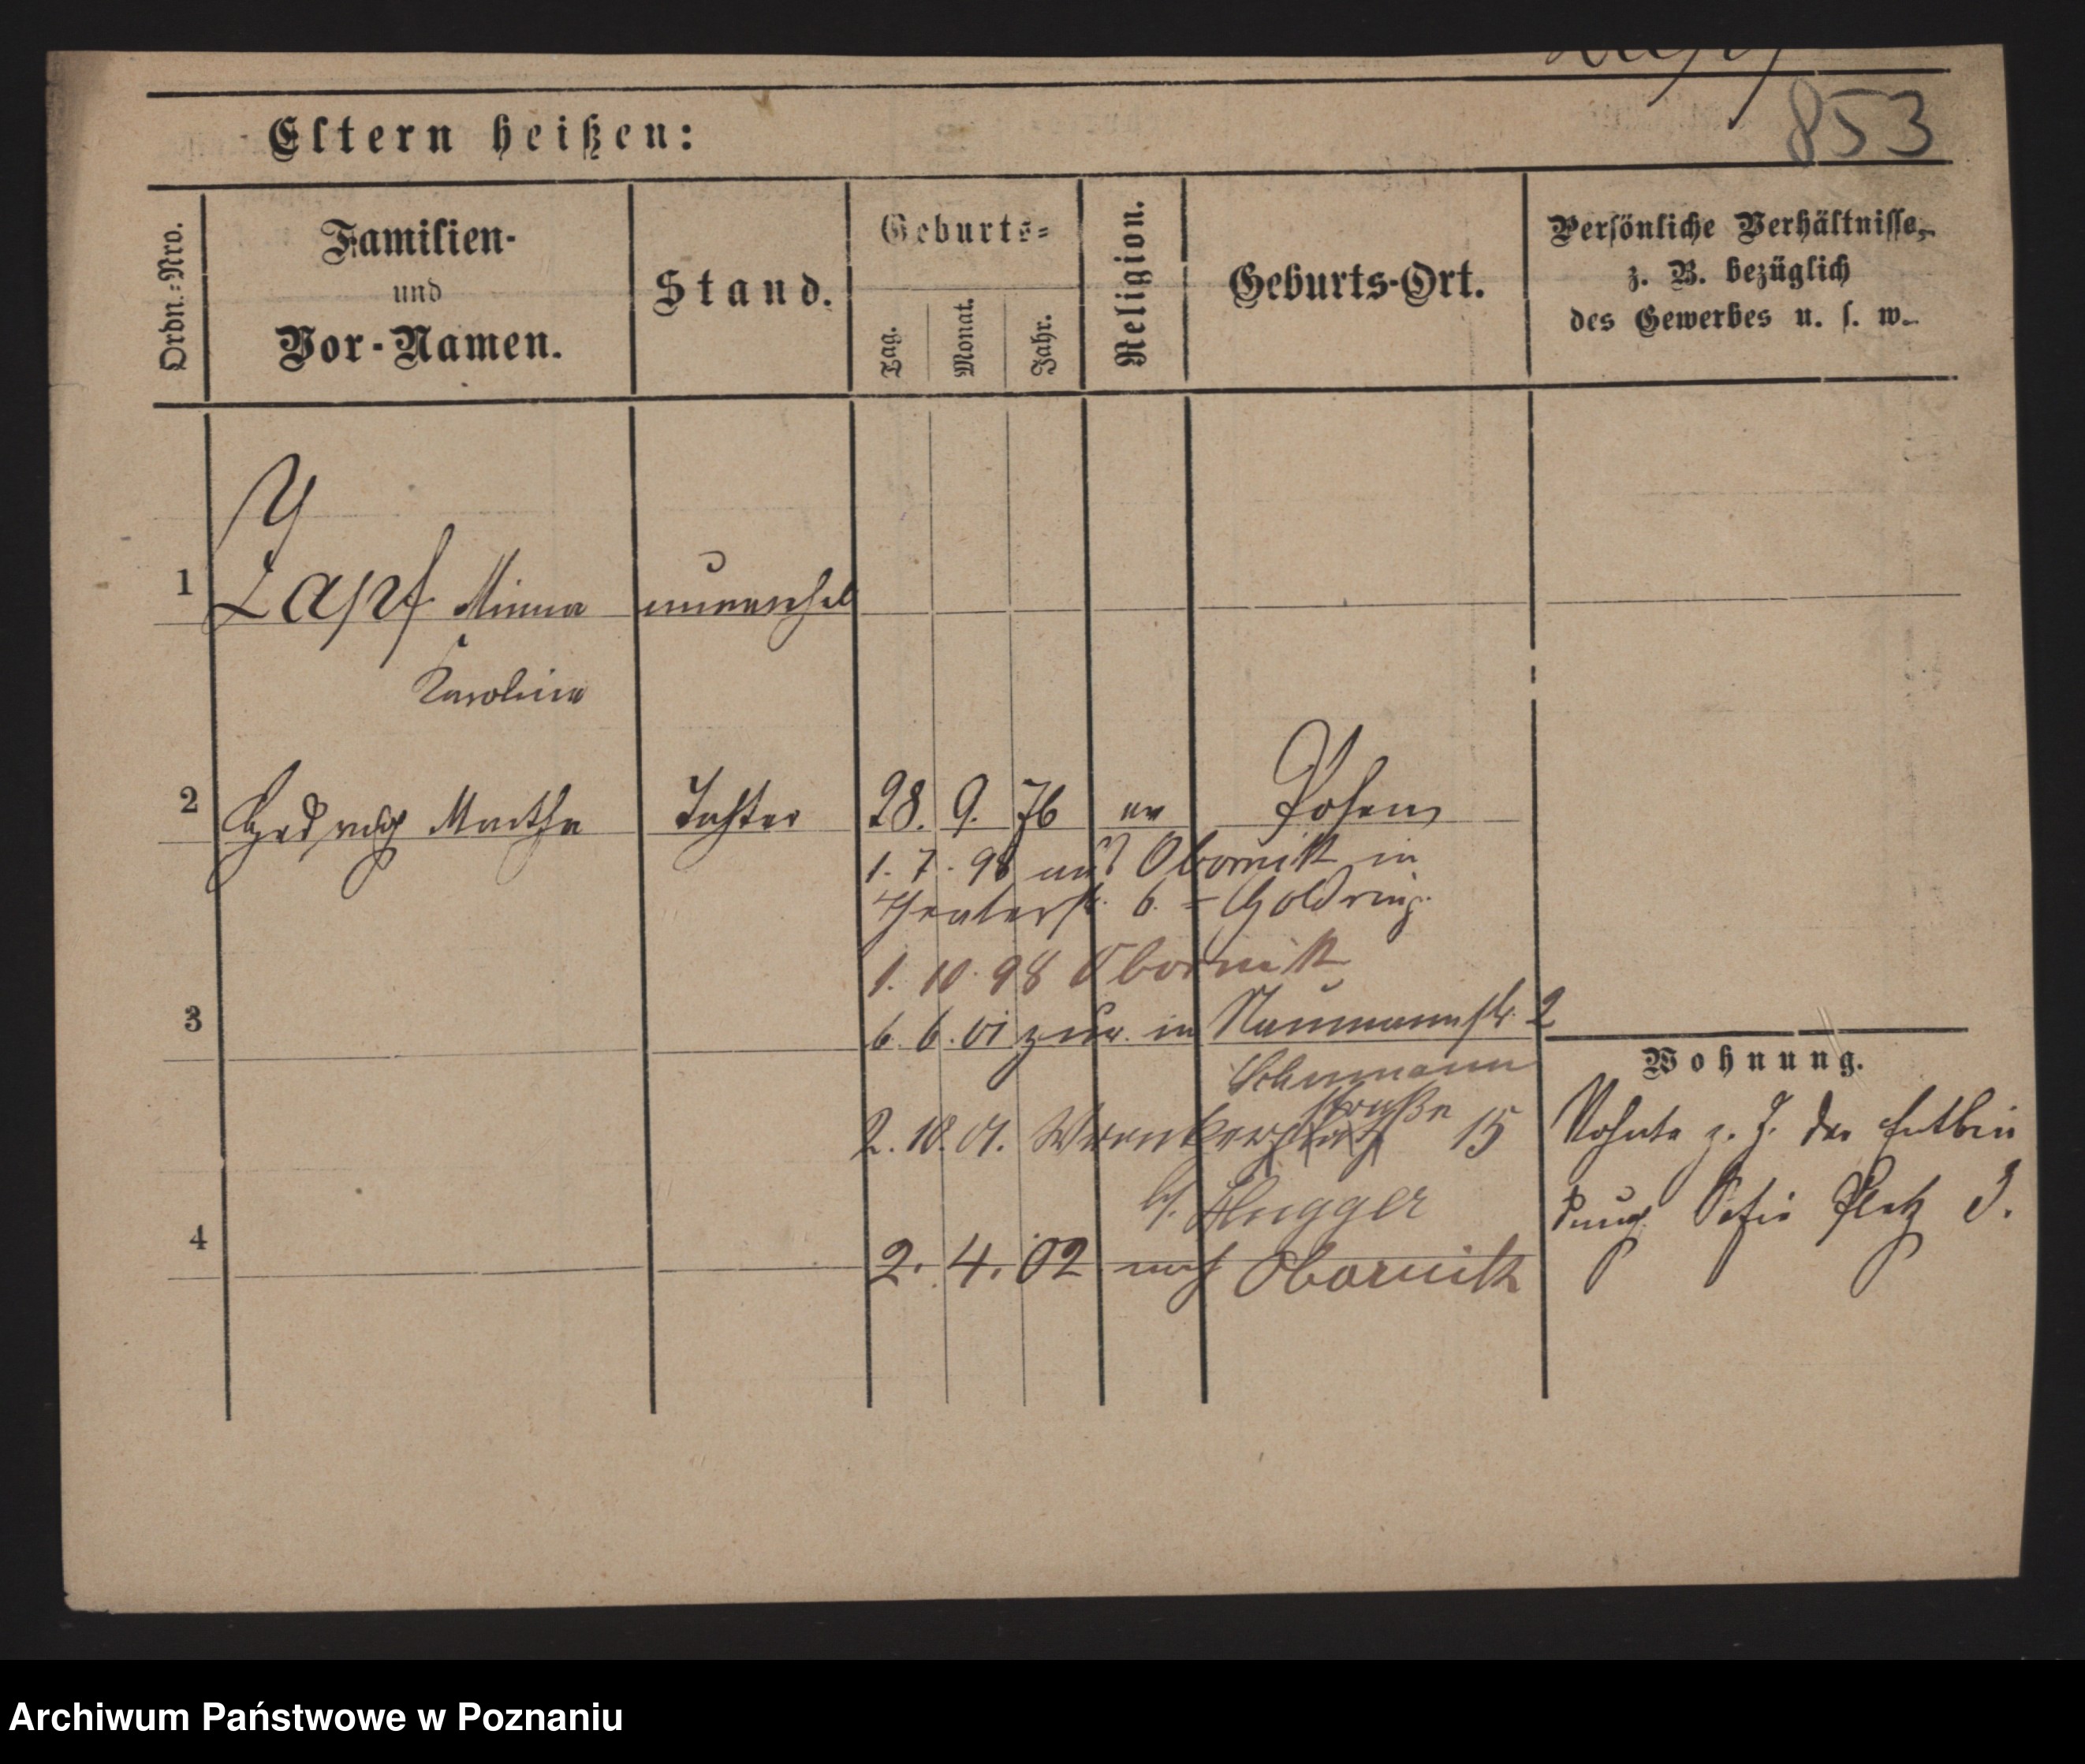 853
Eltern heißen:
Ordn.-Nro.
Familien-
und
Vor-Namen.
Stand.
Geburts-
Tag.
Monat.
Jahr.
Religion.
Geburts-Ort.
Persönliche Verhältnisse,
z. B. bezüglich
des Gewerbes u. s. w.
1 Zapf Minna unverehel
Karolina
2 Hedwig Martha Tochter 28. 9. 76 ev Posen
1. 7. 98 aus Obornik in
Theaterst. 6. = Goldring.
1. 10. 98 Obornik
3 6. 6. 01 zur. in Naumannstr. 2
Schumann
straße
2. 10. 01. Wronkerplatz 15
b/. Flugger
4 2. 4. 02 nach Obornik
Wohnung.
Wohnte z. Z. der Entbin
dung Sapieplatz 3.
Archiwum Państwowe w Poznaniu